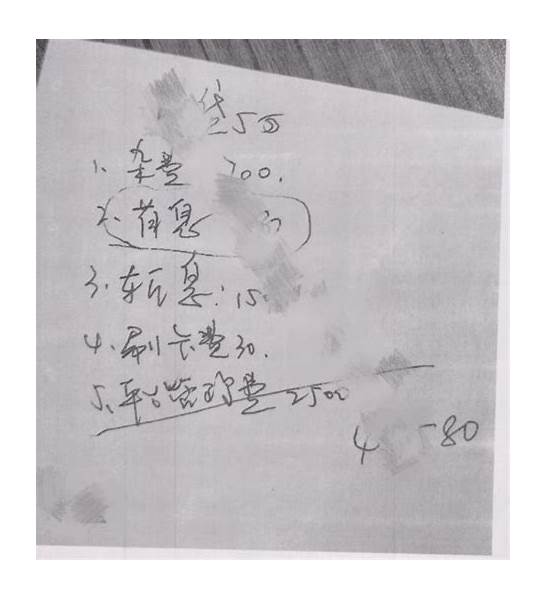 贷5万
1、杂费 700.
2、首息
3、车后息:15
4、刷卡费30.
5、平台管理费 2500
4 580